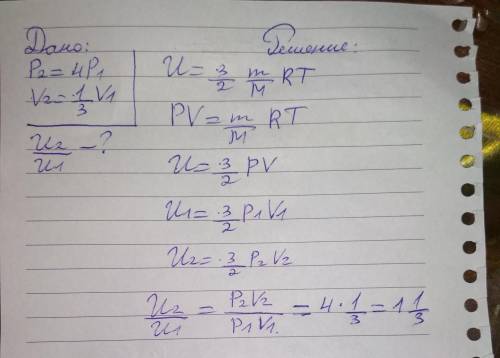 Дано:
P₂ = 4P₁
V₂ = 1/3 V₁
U₂/U₁ - ?
Решение:
U = 3/2 m/M RT
PV = m/M RT
U = 3/2 PV
U₁ = 3/2 P₁V₁
U₂ = 3/2 P₂V₂
U₂/U₁ = P₂V₂/P₁V₁ = 4 · 1/3 = 1 1/3